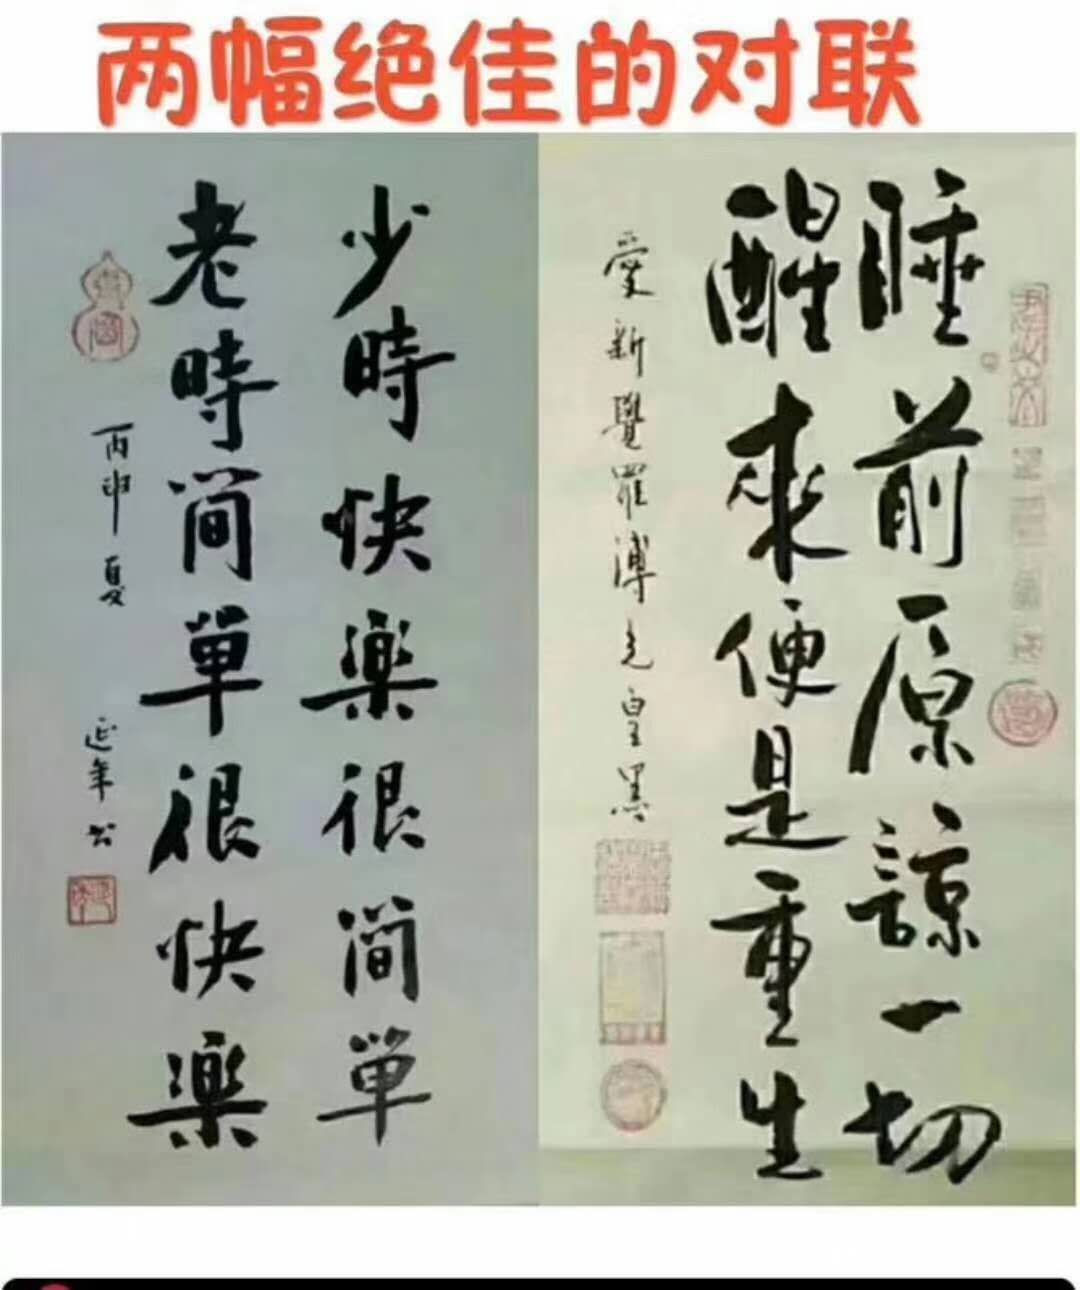 两幅绝佳的对联
睡前原諒一切
醒來便是重生
愛新覺羅溥
少時快樂很簡單
老時簡單很快樂
丙申夏 延年